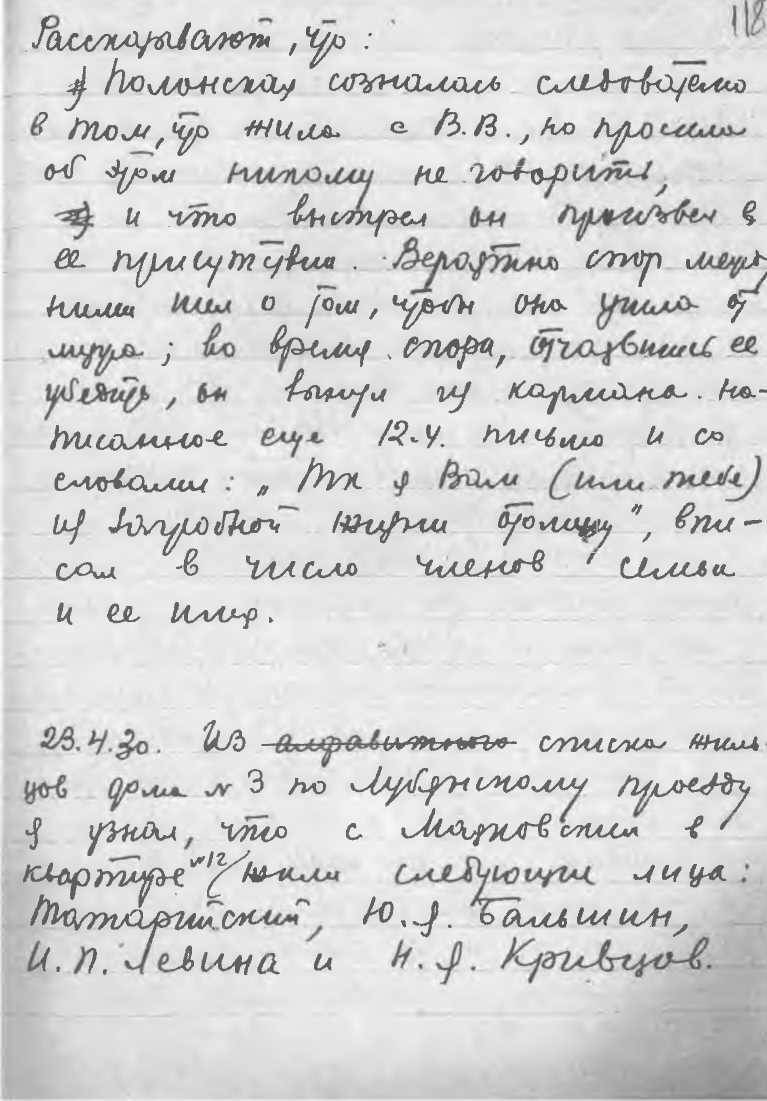 118
Рассказывают, что:
Полонская созналась следователю
в том, что жила с В.В., но просила
об этом никому не говорить,
и что выстрел он произвел в
ее присутствии. Вероятно спор между
ними шел о том, чтобы она ушла от
мужа; во время спора, отчаявшись ее
убедить, он вынул из кармана на-
писанное еще 12.4. письмо и со
словами: „Так я Вам (или тебе)
из загробной жизни отомщу", впи-
сал в число членов семьи
и ее имя.
23.4.30. Из алфавитного списка жиль-
цов дома № 3 по Лубянскому проезду
я узнал, что с Маяковским в
квартире №12 жили следующие лица:
Татарийский, Ю.Я. Бальшин,
И.П. Левина и Н.Я. Кривцов.